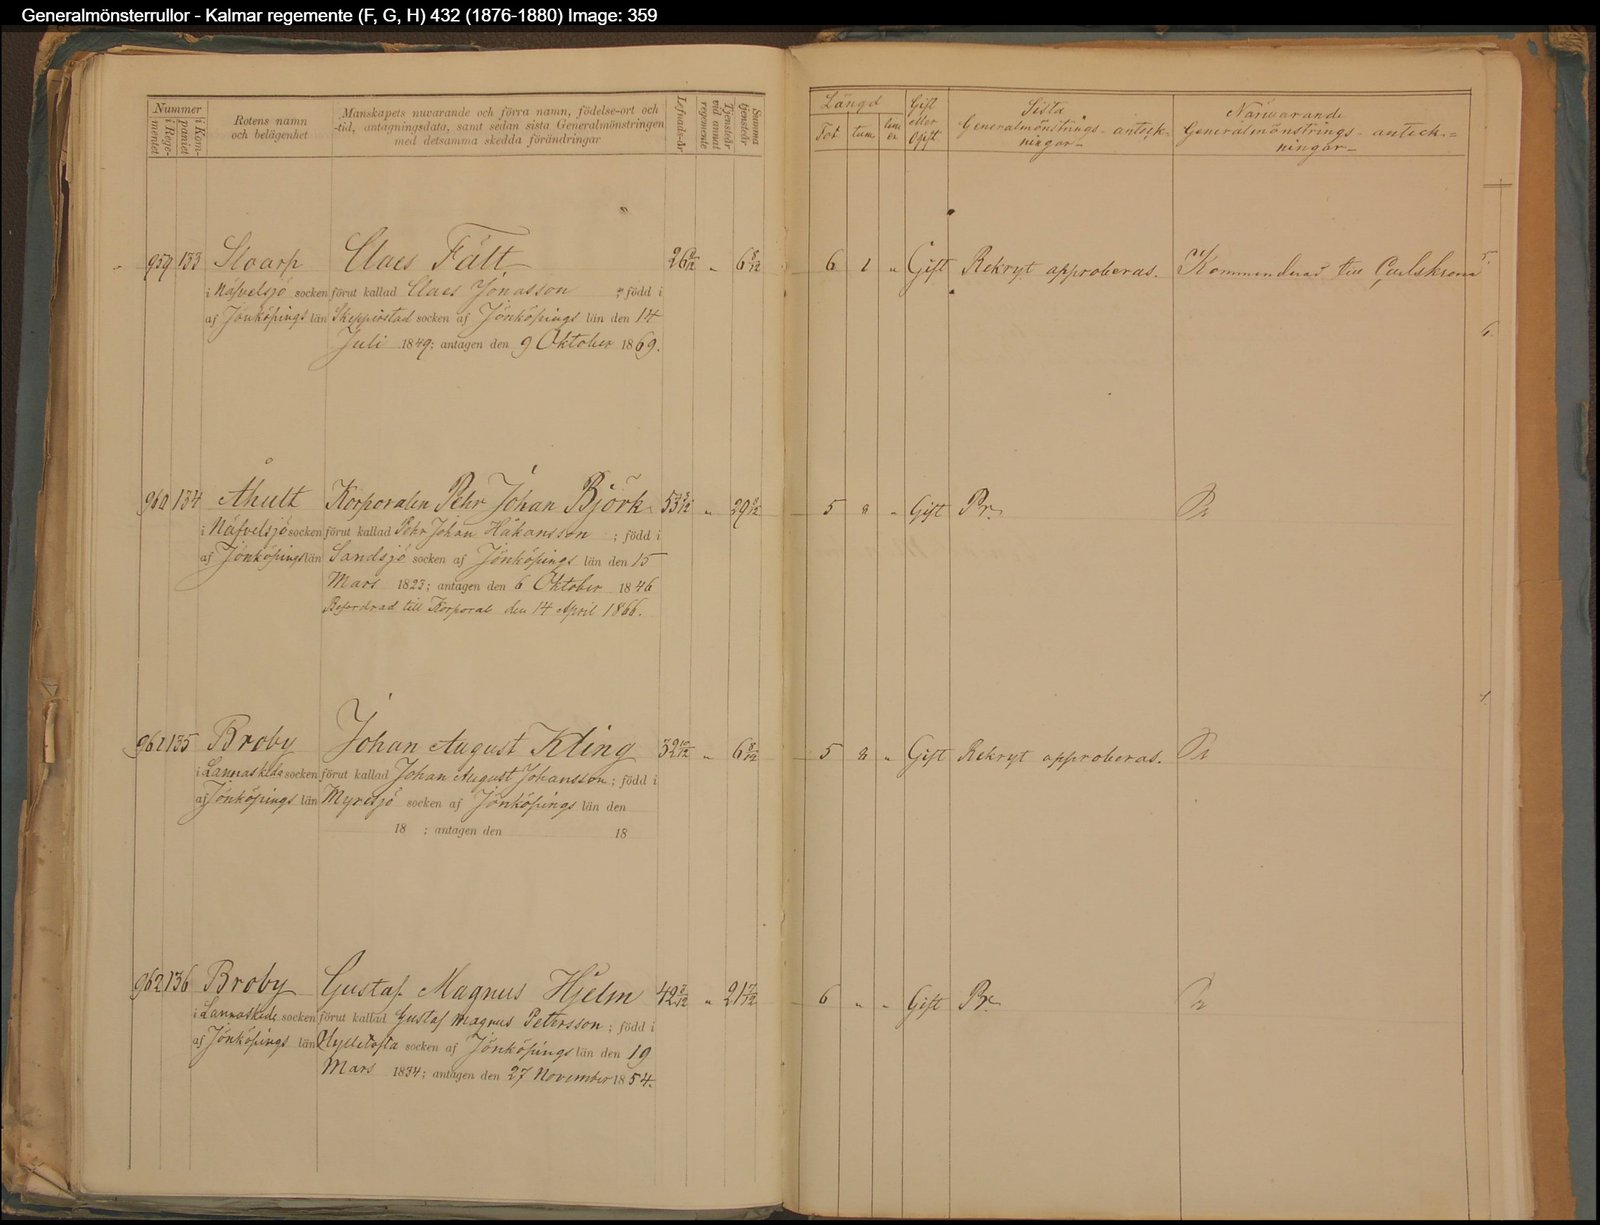 Generalmönsterrullor - Kalmar regemente (F, G, H) 432 (1876-1880) Image: 359
Nummer
i Rege-
mentet
i Kom-
paniet
Rotens namn
och belägenhet
Manskapets nuvarande och förra namn, födelse-ort och
-tid, antagningsdata, samt sedan sista Generalmönstringen
med detsamma skedda förändringar
Lefnads-år
Tjensteår
vid annat
regemente
Summa
tjensteår
Längd
Fot
tum
lini
er
Gift
eller
Ogift
Sista
Generalmönstrings-anteck-
ningar
Närvarande
Generalmönstrings-anteck-
ningar
959 133 Sloarp Claes Fält 26 6 8/12 6 1 " Gift Rekryt approberas. Kommenderad till Carlskrona
i Näfvelsjö socken förut kallad Claes Jonasson ; född i
af Jönköpings län Skeppirstad socken af Jönköpings län den 14
Juli 1849; antagen den 9 Oktober 1869.
960 134 Åhult Korporalen Pehr Johan Björk 53 3/12 " 29 8/12 5 8 " Gift Pr.
i Näfvelsjö socken förut kallad Pehr Johan Håkansson ; född i
af Jönköpings län Sandsjö socken af Jönköpings län den 15
Mars 1823; antagen den 6 Oktober 1846
Befordrad till Korporal den 14 April 1866.
961 135 Broby Johan August Kling 32 10/12 " 6 8/12 5 8 " Gift Rekryt approberas. Pr
i Lannaskede socken förut kallad Johan August Johansson ; född i
af Jönköpings län Myresjö socken af Jönköpings län den
18 ; antagen den 18
962 136 Broby Gustaf Magnus Hjelm 42 3/12 " 21 7/12 6 " " Gift Pr. Pr
i Lannaskede socken förut kallad Gustaf Magnus Petersson ; född i
af Jönköpings län Hylletofta socken af Jönköpings län den 19
Mars 1834; antagen den 27 November 1854.